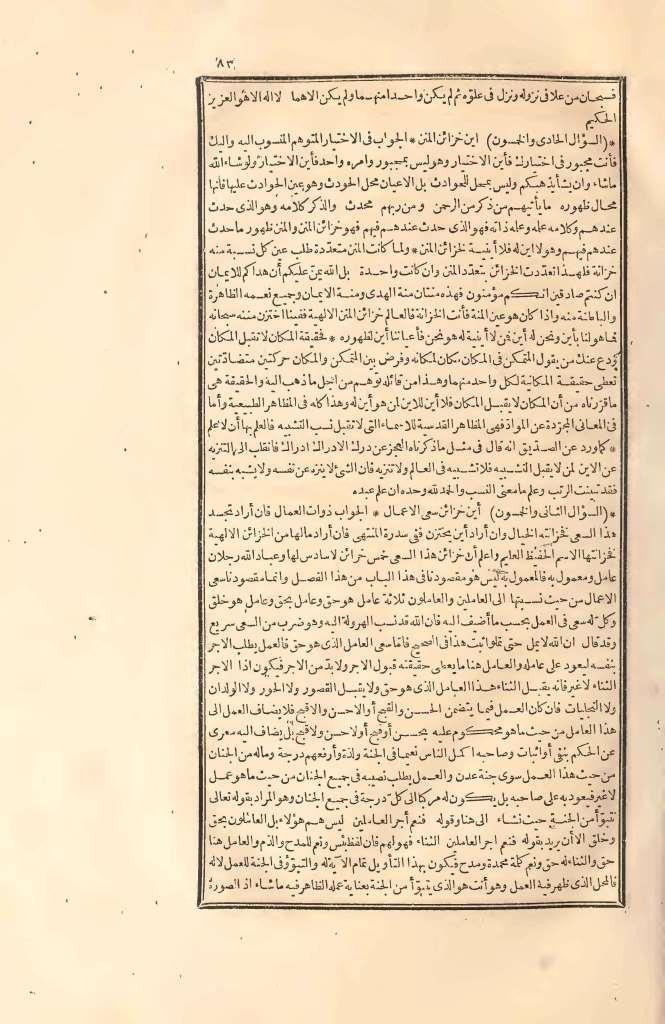 ٨٣
فسبحان من علا في نزوله ونزل في علوه ثم لم يكن واحدا منهما ولم يكن الاهما لا اله الا هو العزيز
الحكيم
* (السؤال الحادى والخمسون) اين خزائن المنن * الجواب في الاختيار المتوهم المنسوب اليه واليك
فأنت مجبور في اختيارك فأين الاختيار وهو ليس بمجبور وامره واحد فأين الاختيار ولو شاء الله
ما شاء وان يشأ يذهبكم وليس بمحل للحوادث بل الاعيان محل الحودث وهو عين الحوادث عليها فانها
محال ظهوره ما يأتيهم من ذكر من الرحمن و من ربهم محدث والذكر كلامه وهو الذى حدث
عندهم وكلامه علمه وعلمه ذاته فهو الذى حدث عندهم فيهم فهو خزائن المنن والمنن ظهور ما حدث
عندهم فيهم وهو لا اين له فلا أينية لخزائن المنن * ولما كانت المنن متعددة طلب عين كل نسبة منه
خزانة فلهذا تعددت الخزائن بتعدد المنن وان كانت واحدة بل الله يمن عليكم أن هداكم للايمان
ان كنتم صادقين انكم مؤمنون فهذه منتان منة الهدى ومنة الايمان وجميع نعمه الظاهرة
والباطنة منه واذا كان هو عين المنة فأنت الخزانة فالعالم خزائن المنن الالهية ففينا اختزن مننه سبحانه
فما هو لنا بأين ونحن له أين فمن لا أينية له هو نحن فأعياننا أين لظهوره * فحقيقة المكان لا تقبل المكان
ودع عنك من يقول المتمكن في المكان مكان لمكانه وفرض بين المتمكن والمكان حركتين متضادتين
تعطى حقيقة المكانية لكل واحد منهما وهذا من قائله توهم من اجل ما ذهب اليه والحقيقة هى
ما قررناه من أن المكان لا يقبل المكان فلا أين للاين لمن هو أين له وهذا كله في المظاهر الطبيعية وأما
في المعانى المجردة عن المواد فهى المظاهر القدسة للاسماء التى لا تقبل نسب التشبيه فالعلم بها أن لا علم
* كما ورد عن الصديق انه قال في مثل ما ذكرناه العجز عن درك الادراك ادراك فانقلب الى التنزيه
عن الاين لمن لا يقبل التشبيه فلا تشبيه في العالم ولا تنزيه فان الشئ لا ينزه عن نفسه ولا يشبه بنفسه
فقد تبينت الرتب وعلم ما معنى النسب والحمد لله وحده ان علم عبده
* (السؤال الثانى والخمسون) أين خزائن سعى الاعمال * الجواب ذوات العمال فان أراد تجسد
هذا السعى فخزانته الخيال وان أراد أين يختزن ففى سدرة المنتهى فان أراد مالها من الخزائن الالهية
فخزانتها الاسم الحفيظ العليم واعلم أن خزائن هذا السعى خمس خزائن لا سادس لها وعباد الله رجلان
عامل ومعمول به فالمعمول به ليس هو مقصودنا في هذا الباب من هذا الفصل وانما مقصودنا سعى
الاعمال من حيث نسبتها الى العاملين والعاملون ثلاثة عامل هو حق وعامل بحق وعامل هو خلق
وكل له سعى في العمل بحسب ما أضيف اليه فان الله قد نسب الهرولة اليه وهو ضرب من السعى سريع
وقد قال ان الله لا يمل حتى تملوا ثبت هذا في الصحيح فاما سعى العامل الذى هو حق فالعمل يطلب الاجر
بنفسه ليعود على عامله والعامل هنا ما يعطى حقيقته قبول الاجر ولا بد من الاجر فيكون اذا الاجر
الثناء لا غير فانه يقبل الثناء هذا العامل الذى هو حق ولا يقبل القصور ولا الحور ولا الولدان
ولا التجليات فان كان العمل فيما يتضمن الحسن والقبيح أو الاحسن والاقبح فلا يضاف العمل الى
هذا العامل من حيث ما هو محكوم عليه بحسن أو قبح أو لا حسن ولا قبح بل يضاف اليه معرى
عن الحكم بنفى أو اثبات وصاحبه اكمل الناس نعيما في الجنة ولذة وأرفعهم درجة وماله من الجنان
من حيث هذا العمل سوى جنة عدن والعمل يطلب نصيبه في جميع الجنان من حيث ما هو عمل
لا غير فيعود به على صاحبه بل يكون له مركبا الى كل درجة في جميع الجنان وهو المراد بقوله تعالى
نتبوأ من الجنة حيث نشاء الى هنا وقوله فنعم أجر العاملين ليس هم هؤلاء بل العاملون بحق
وخلق الا أن يريد بقوله فنعم اجر العاملين الثناء فهو لهم فان لفظ بئس ونعم للمدح والذم والعامل هنا
حق والثناء له حق ونعم كلمة محمدة ومدح فيكون بهذا التأويل تمام الآية له والتبوّؤ في الجنة للعمل لا له
فالمحل الذى ظهر فيه العمل وهو أنت هو الذى يتبوأ من الجنة بعناية عمله الظاهر فيه ما شاء اذ الصورة